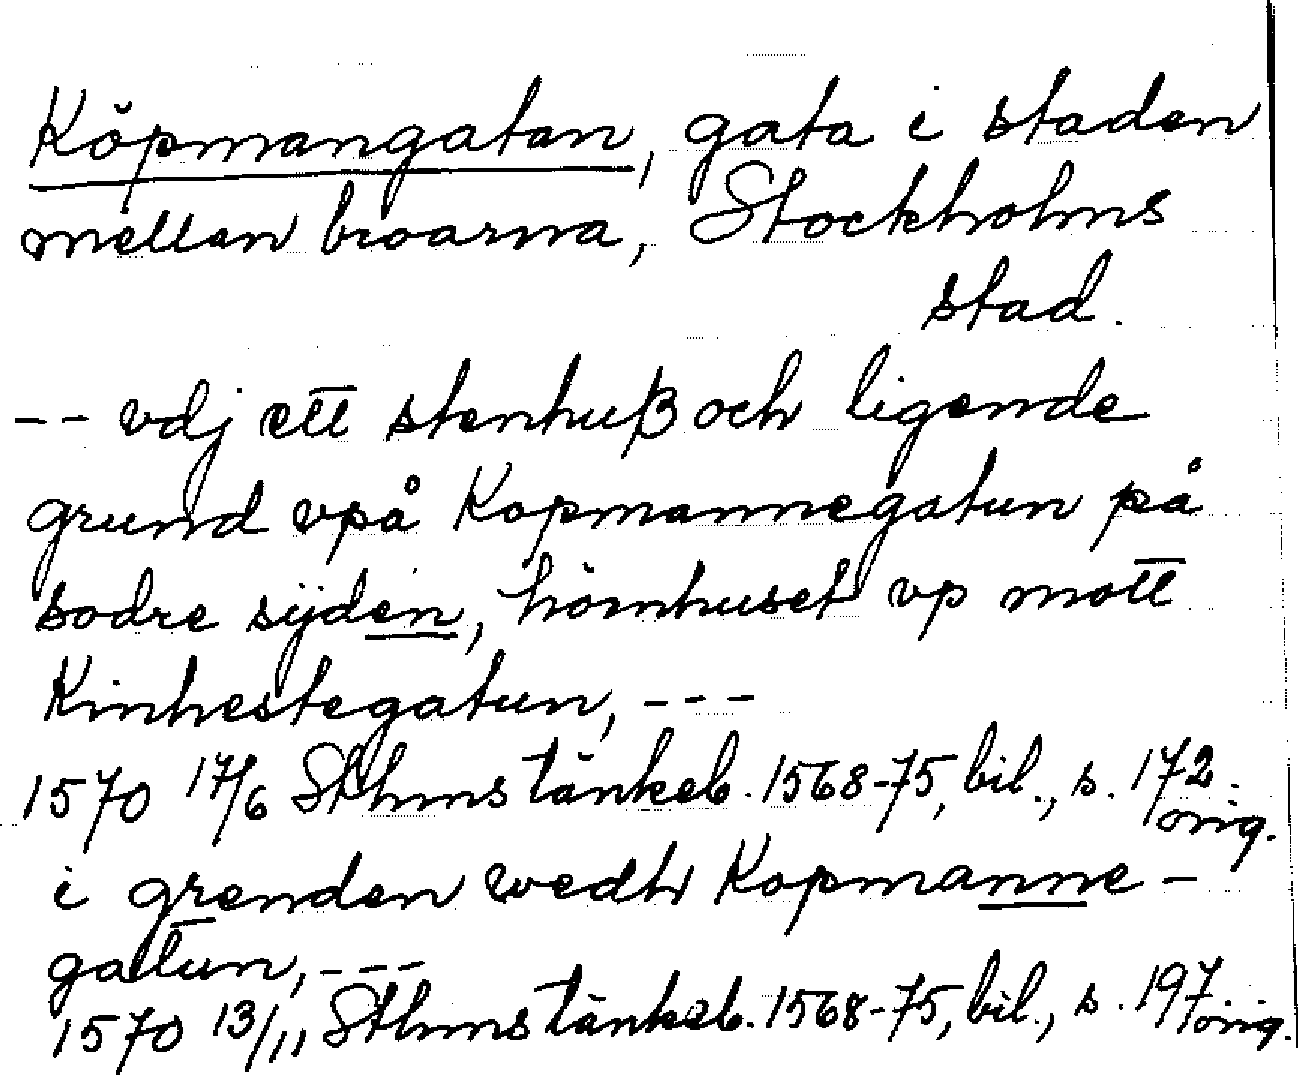 Köpmangatan, gata i staden
mellan broarna, Stockholms
stad.
-- vdj ett stenhuß och ligende
grund vpå Kopmannegatun på
sodre sijden, hörnhuset vp mott
Kinhestegatun, ---
1570 17/6 Sthms tänkeb. 1568-75, bil., s. 172.
orig.
i grenden wedh Kopmanne-
gattun, ---
1570 13/11, Sthms tänkeb. 1568-75, bil., s. 197
orig.